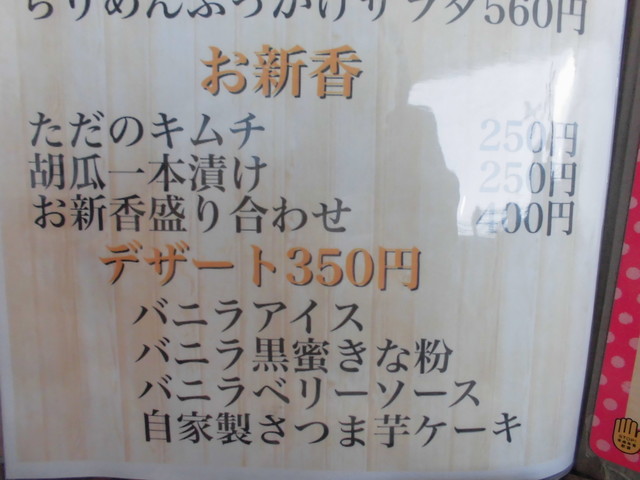 ちりめんぶっかけサラダ560円
お新香
ただのキムチ 250円
胡瓜一本漬け 250円
お新香盛り合わせ 400円
デザート350円
バニラアイス
バニラ黒蜜きな粉
バニラベリーソース
自家製さつま芋ケーキ